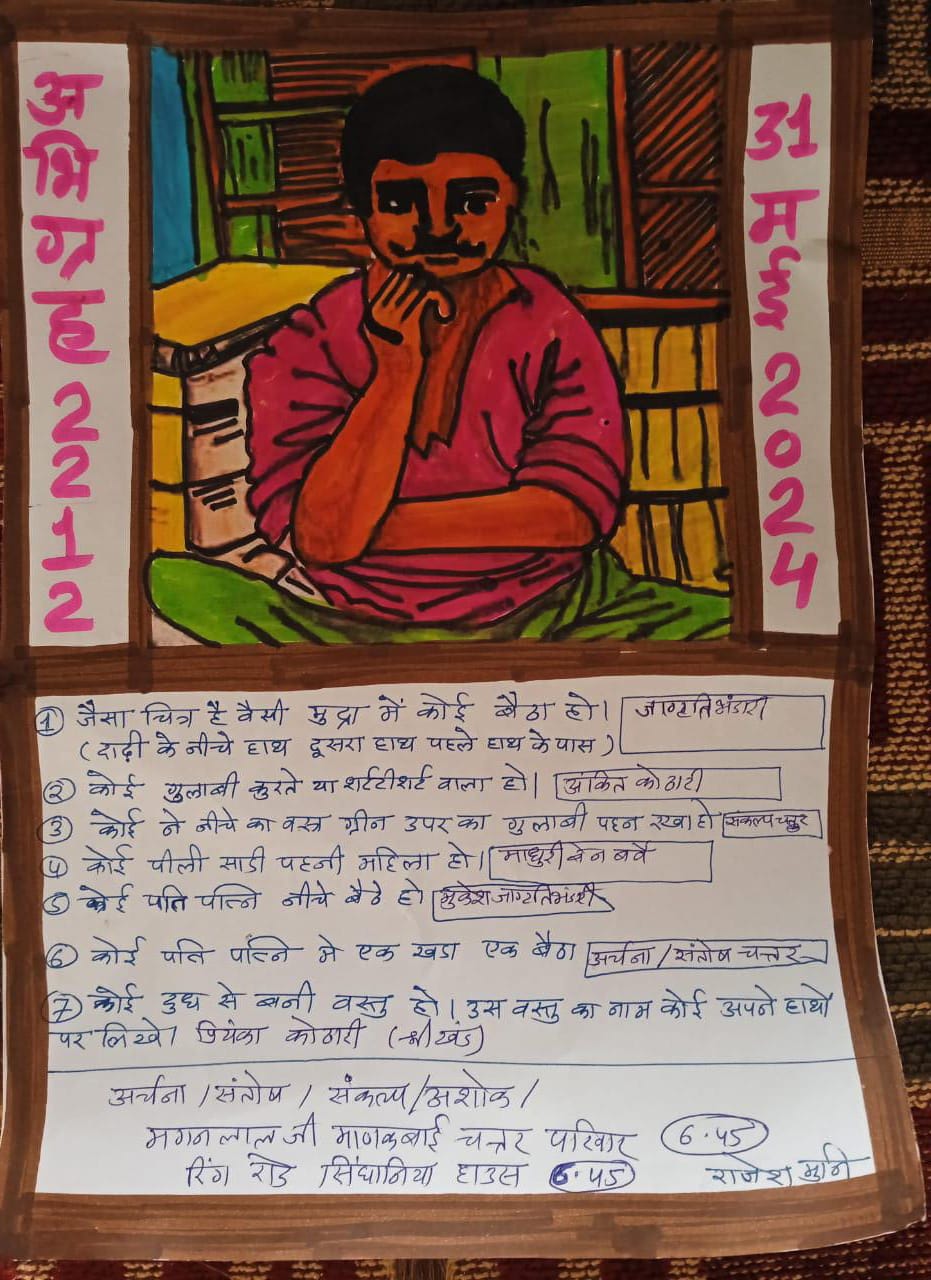 अभिग्रह 2212
31 मई 2024
① जैसा चित्र है वैसी मुद्रा में कोई बैठा हो। जागृति भंडारी
(दाढ़ी के नीचे हाथ दूसरा हाथ पहले हाथ के पास)
② कोई गुलाबी कुरते या शर्ट टीशर्ट वाला हो। अंकित कोठारी
③ कोई ने नीचे का वस्त्र ग्रीन उपर का गुलाबी पहन रखा हो संकल्प चत्तर
④ कोई पीली साडी पहनी महिला हो। माधुरी बेन बर्वे
⑤ कोई पति पत्नि नीचे बैठे हो मुकेश जागृति भंडारी
⑥ कोई पति पत्नि मे एक खडा एक बैठा अर्चना / संतोष चत्तर
⑦ कोई दुध से बनी वस्तु हो। उस वस्तु का नाम कोई अपने हाथो
पर लिखे। प्रियंका कोठारी (श्रीखंड)
अर्चना / संतोष / संकल्प / अशोक /
मगनलाल जी माणकबाई चत्तर परिवार 6.45
रिंग रोड सिंघानिया हाउस 6.45 राजेश मुनि